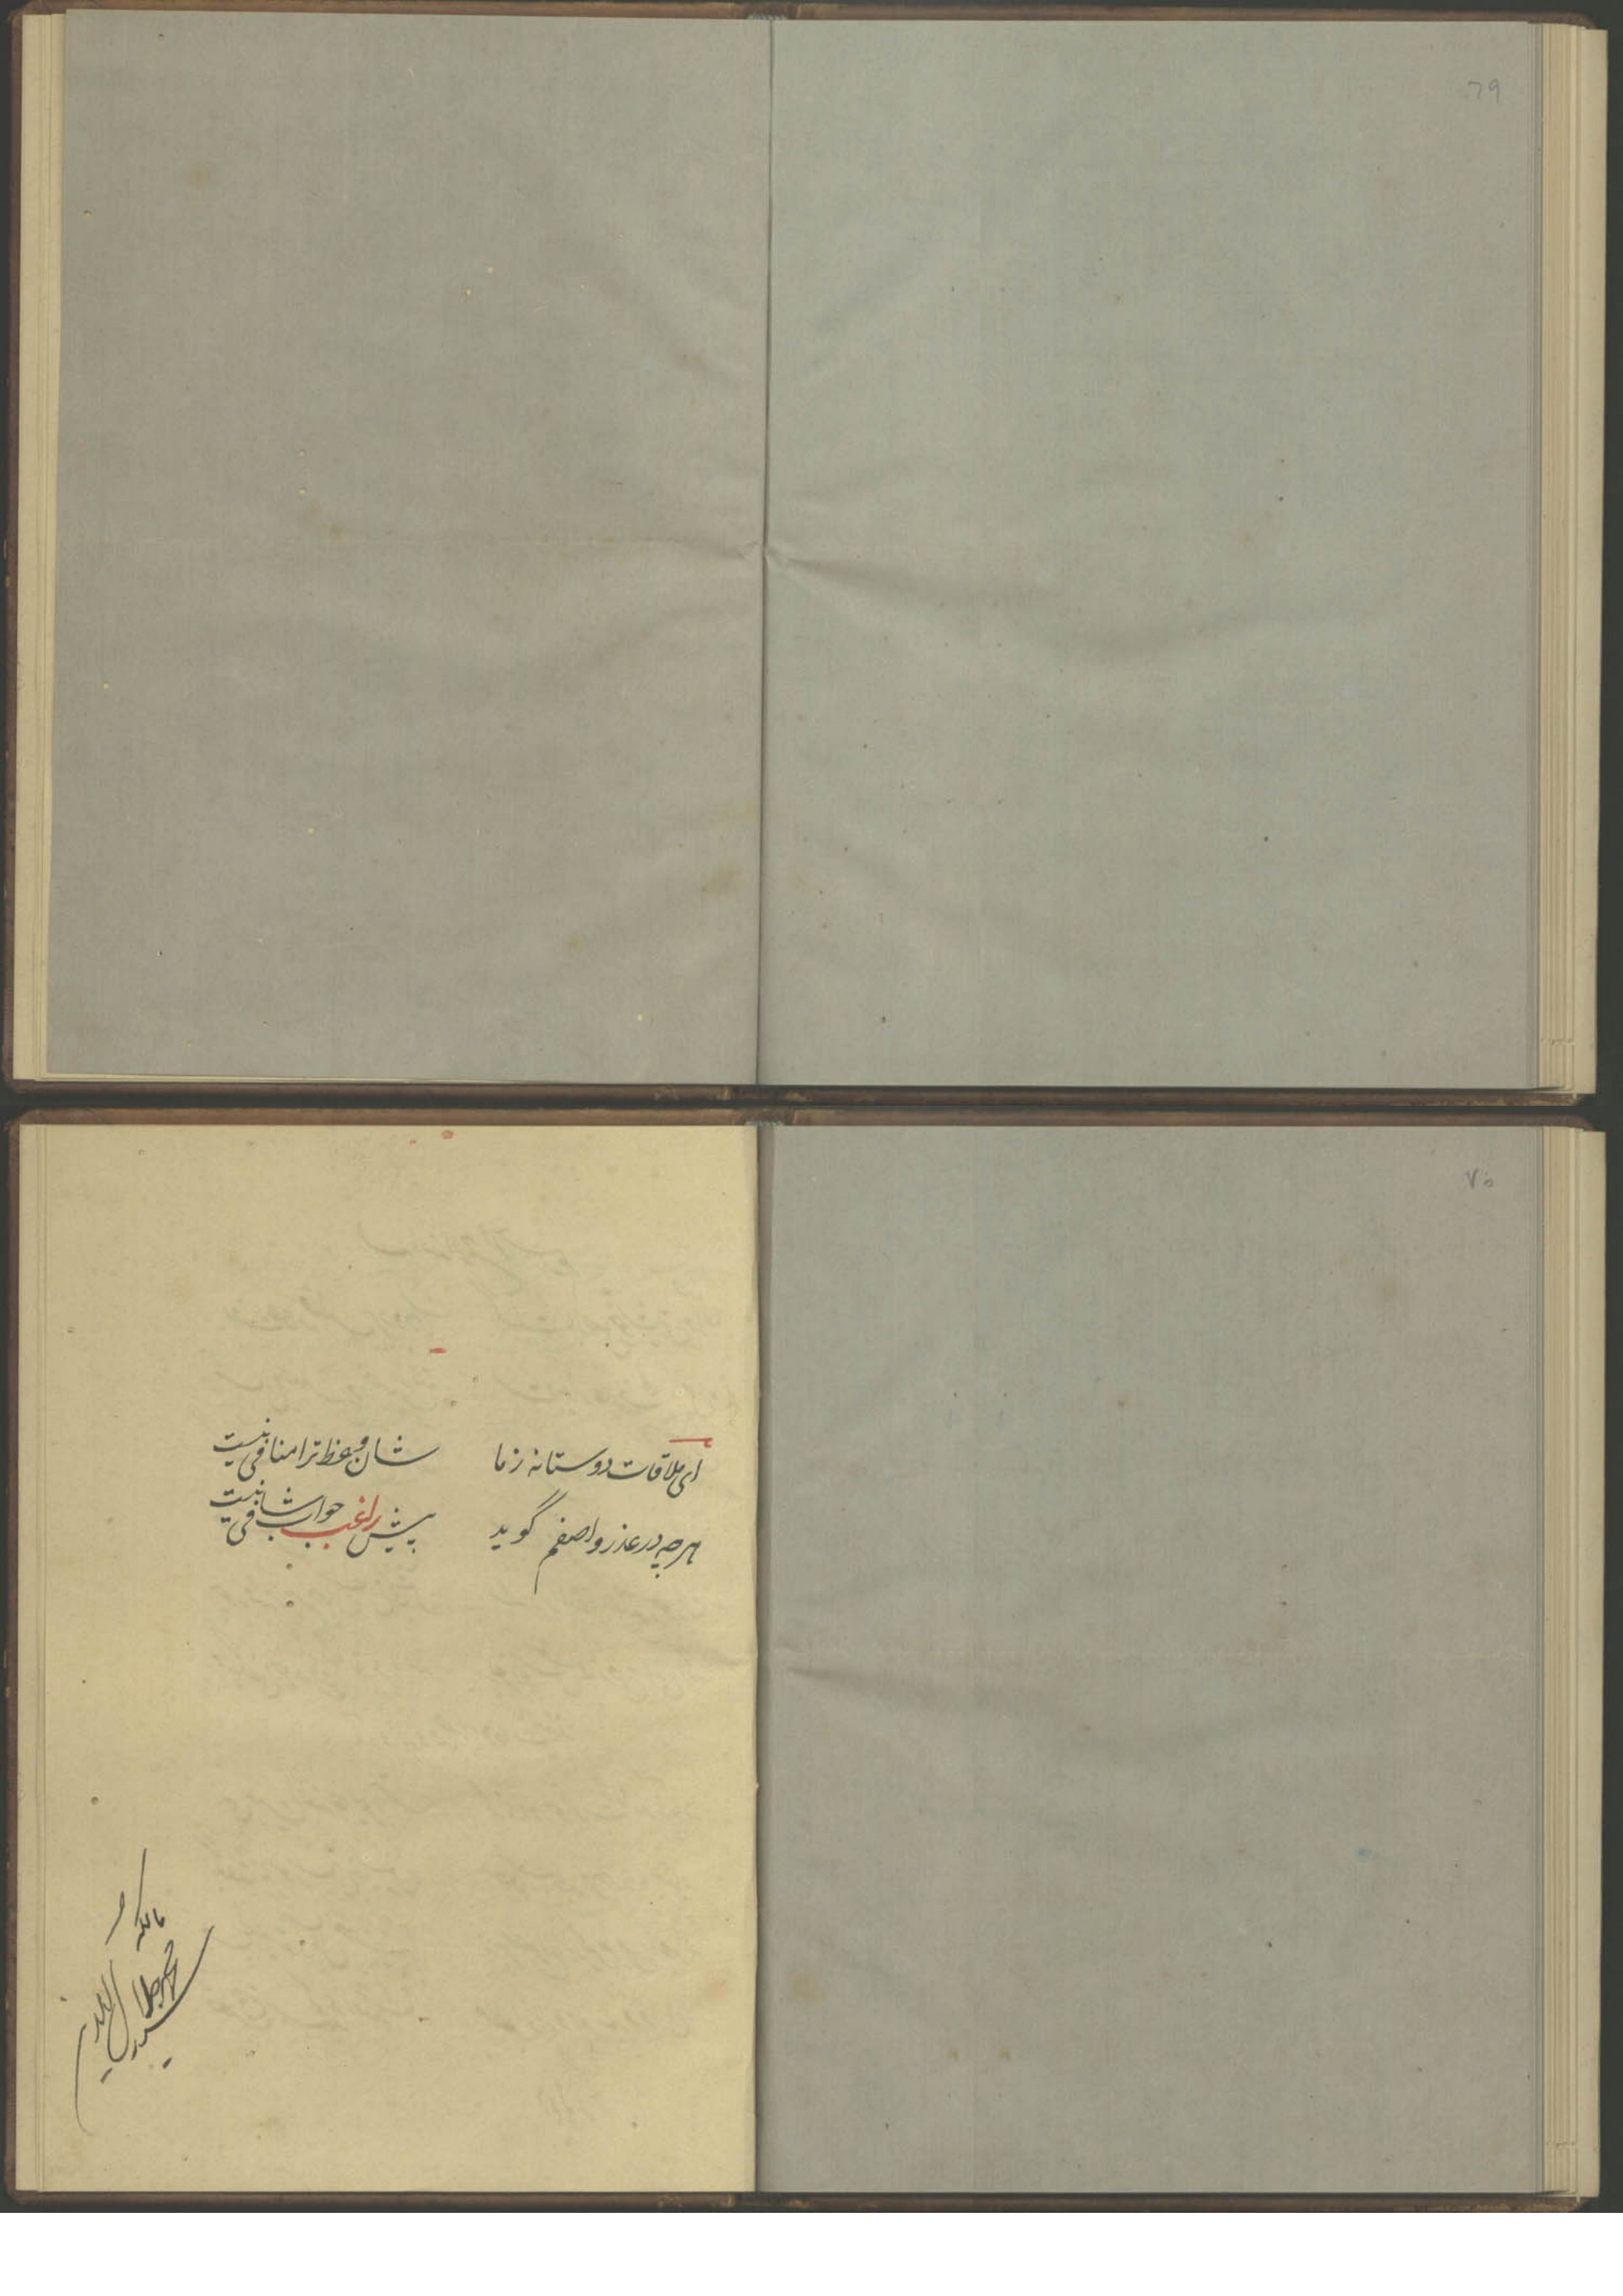 ۶۹
۷۰
ای ملاقات دوستانه ز ما شان وعظ ترا منافی نیست
هرچه در عذر واصفم گوید پیش راغب جواب شافی نیست
مالکه
سید محمد جلال الدین